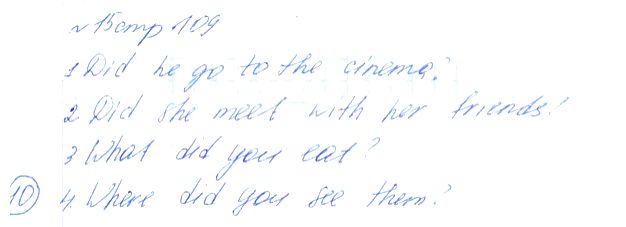 № 15 стр 109
1 Did he go to the cinema?
2 Did she meet with her friends?
3 What did you eat?
10 4. Where did you see them?